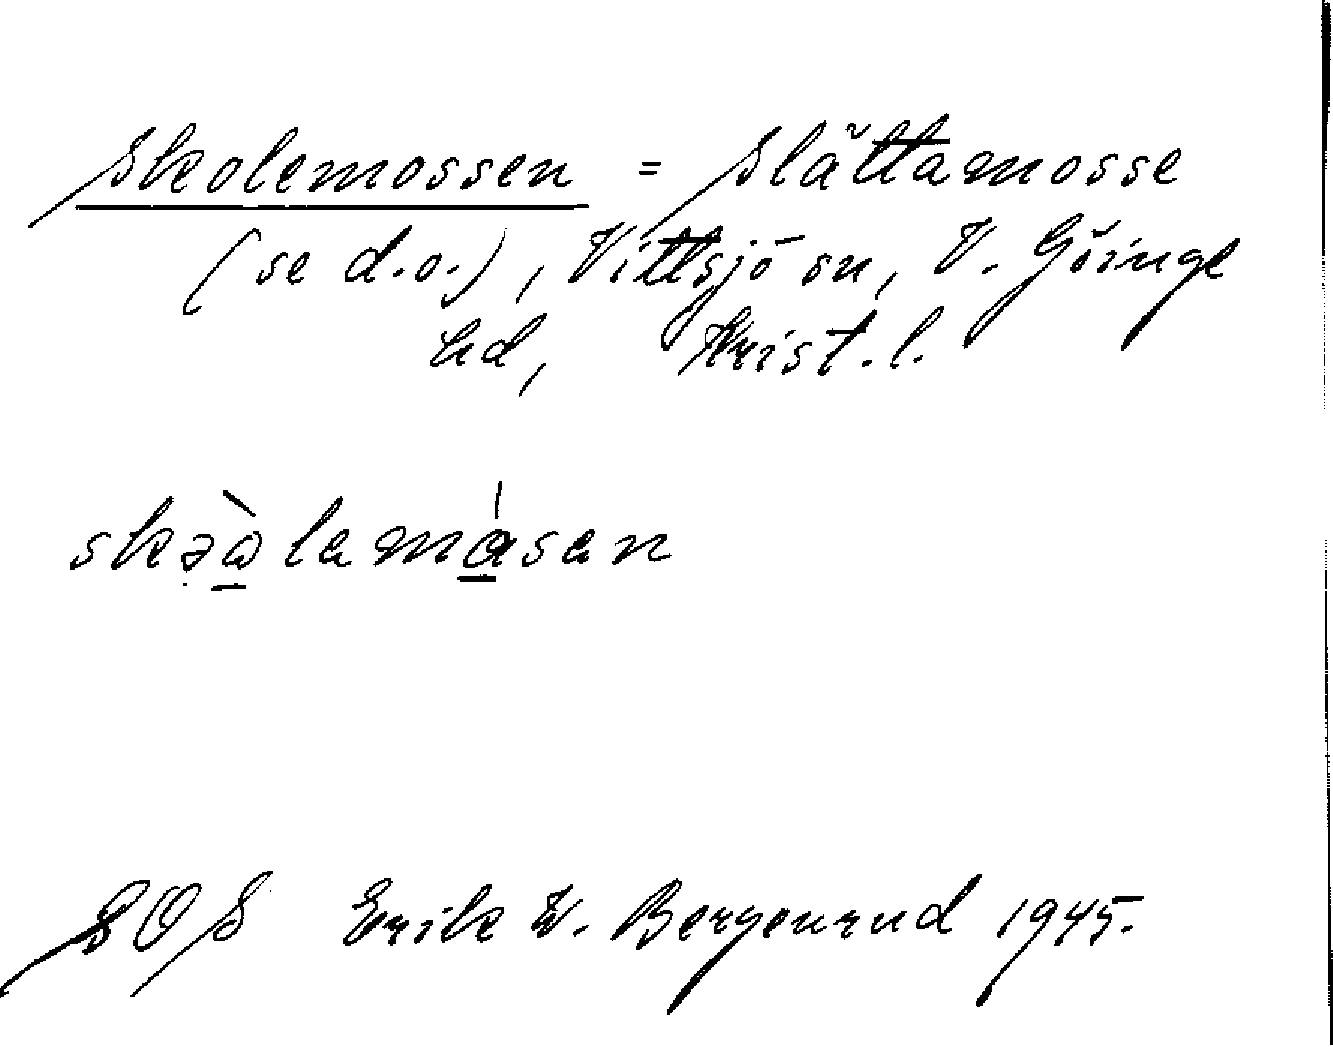 Skolemossen = Slättamosse
(se d.o.), Vittsjö sn, V. Göinge
hd, Krist. l.
skəὰlamάsan
SOS Erik W. Bergenrud 1945.